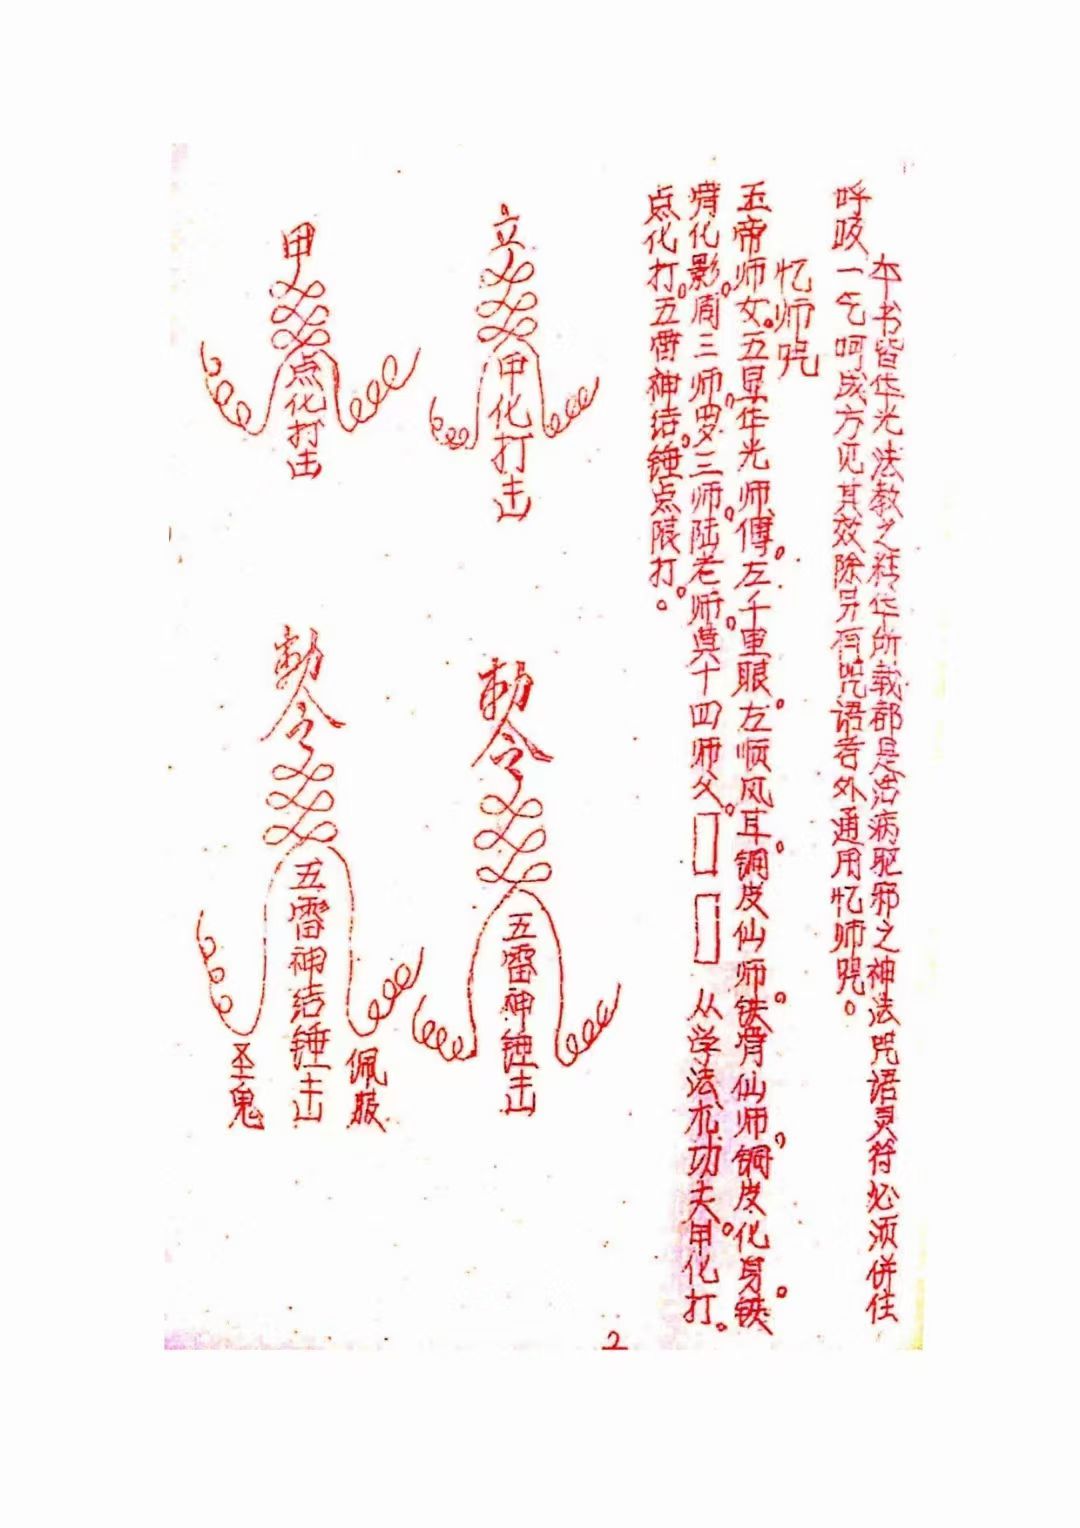 本书皆华光法教之精华所载都是治病驱邪之神法咒语灵符必须併住
呼吱一乞呵成方见其效除另有咒语者外通用忆师咒。
忆师咒
五帝师女。五显华光师傅。左千里眼。左顺风耳。铜皮仙师。铁骨仙师。铜皮化身。铁
骨化影。周三师。罗三师。陆老师。莫十四师父。 从学法朮功夫。甲化打。
点化打。五雷神结锤点限打。
立
甲化打击
甲
点化打击
勅令
五雷神锤击
勅令
五雷神结锤击
佩肢
圣鬼
2